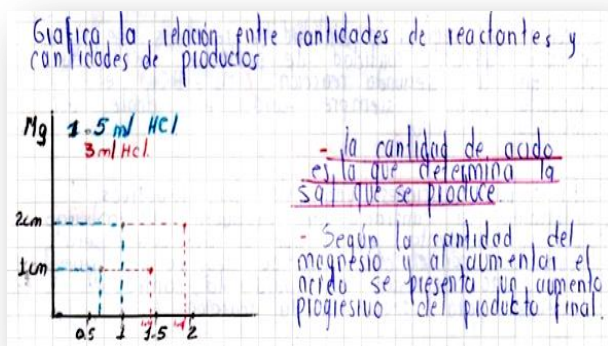 Grafica la relación entre cantidades de reactantes y
cantidades de productos
Mg
1.5 ml HCl
3 ml HCl.
2cm
1cm
0.5 1 1.5 2
- la cantidad de acido
es la que determina la
sal que se produce
- Según la cantidad del
magnesio y al aumentar el
acido se presenta un aumento
progresivo del producto final.